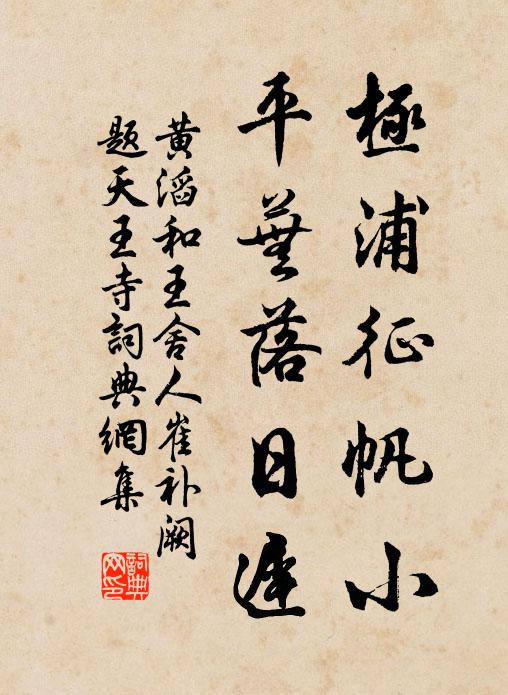 極浦征帆小
平蕪落日遲
黄滔和王舍人崔补阙
题天王寺詞典網集
詞典网印